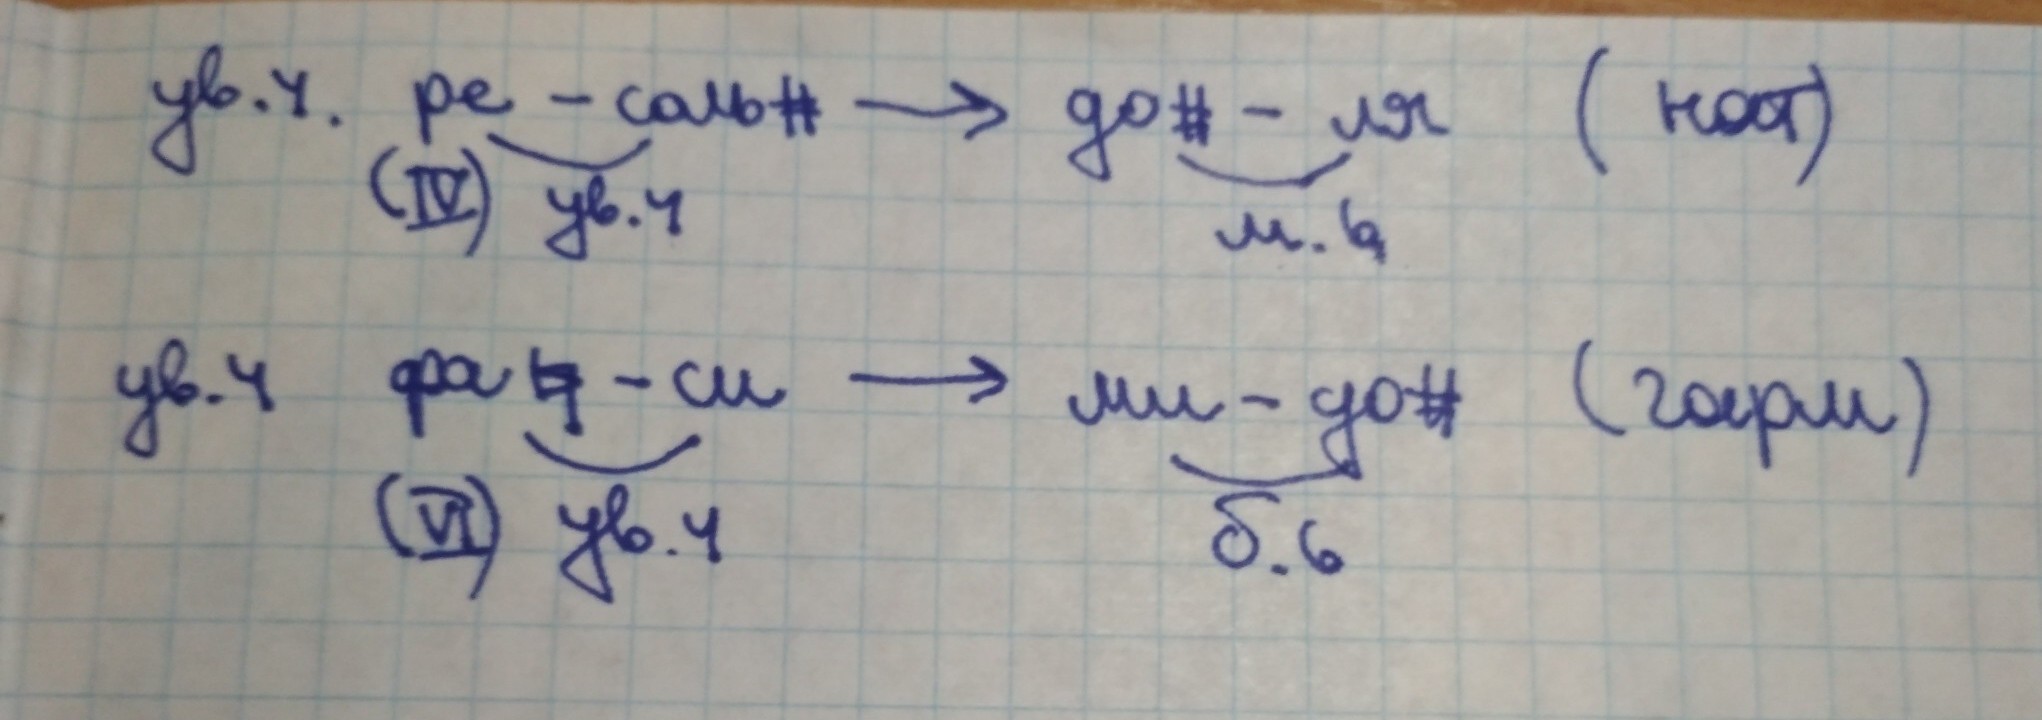 ув.4. ре - соль# → до# - ля (нат)
(IV) ув.4 м.6
ув.4 фа♮ - си → ми - до# (гарм)
(VI) ув.4 б.6